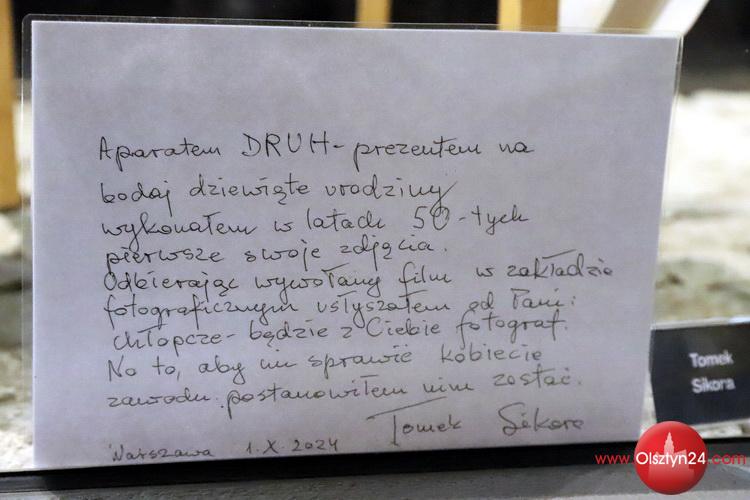 Aparatem DRUH - prezentem na
bodaj dziewiąte urodziny
wykonałem w latach 50-tych
pierwsze swoje zdjęcia.
Odbierając wywołany film w zakładzie
fotograficznym usłyszałem od Pani:
chłopcze - będzie z Ciebie fotograf.
No to, aby nie sprawić kobiecie
zawodu postanowiłem nim zostać.
Tomek Sikora
Warszawa 1.X.2024
Tomek
Sikora
www.Olsztyn24.com